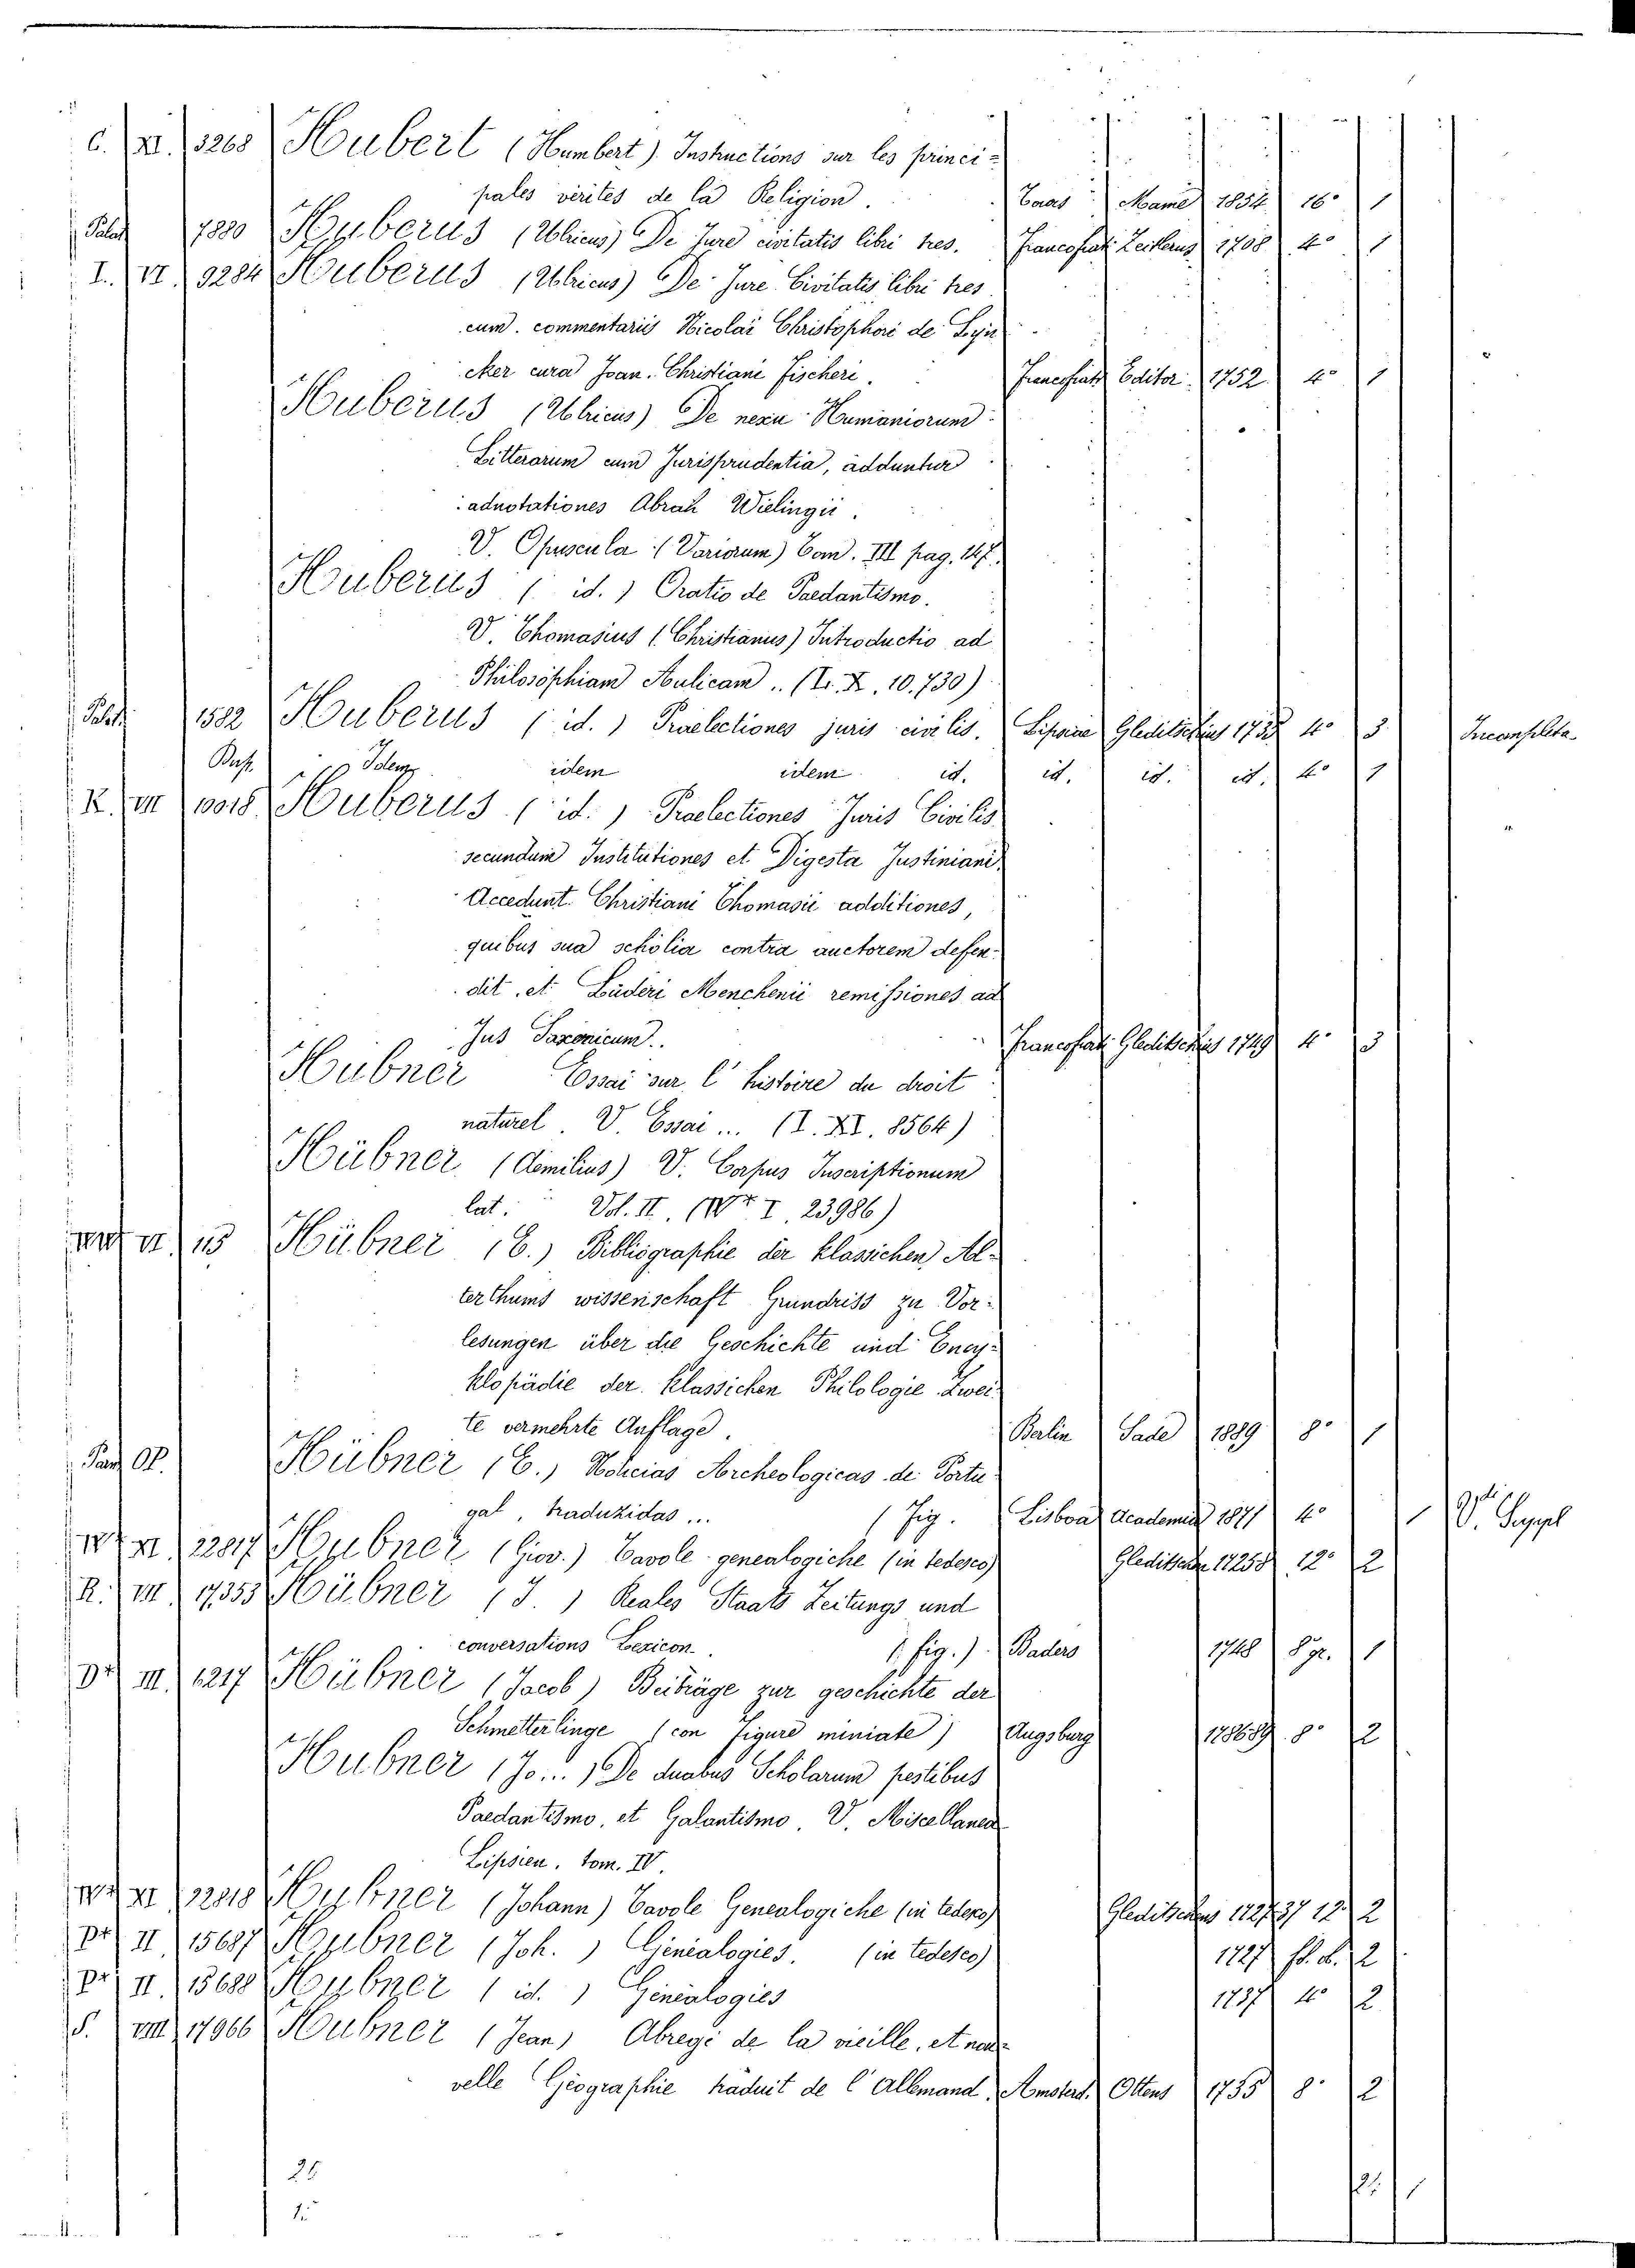 C. XI. 3268 Hubert (Humbert) Instructions sur les princi=
pales vérites de la Religion. Mame 1854 16° 1
Palat 7880 Huberus (Ulricus) De Jure civitatis libri tres. Francofurt. Zeitlerus 1708 4° 1
I. VI. 9284 Huberus (Ulricus) De Jure Civitatis libri tres
cum commentariis Nicolai Christophori de Lyn
cker cura Joan. Christiani Fischeri. Francofurt. Editor 1752 4° 1
Huberus (Ulricus) De nexu Humaniorum
Litterarum cum Jurisprudentia, adduntur
adnotationes Abrah Wielingii.
V. Opuscula (Variorum) Tom. III pag. 147.
Huberus (id.) Oratio de Paedantismo.
V. Thomasius (Christianus) Introductio ad
Philosophiam Aulicam .. (Ir. X. 10.730)
Palat 1582 Huberus (id.) Praelectiones juris civilis. Lipsiae Gleditschius 4° 3 Incompleta
Idem idem idem id. id. id. id. 4° 1
K. VII 10018 Huberus (id.) Praelectiones Juris Civilis
secundum Institutiones et Digesta Justiniani,
Accedunt Christiani Thomasii additiones,
quibus sua scholia contra auctorem defen=
dit, et Lüderi Menchenii remissiones ad
Jus Saxonicum. Francofurt. Gleditschius 1749 4° 3
Hubner Essai sur l'histoire du droit
naturel. V. Essai ... (I. XI. 8564)
Hübner (Aemilius) V. Corpus Inscriptionum
lat. Vol. II. I 23986)
II 115 Hübner (E.) Bibliographie der klassichen Al=
terthums wissenschaft Grundriss zu Vor=
lesungen über die Geschichte und Ency=
klopädie der klassichen Philologie Zwei=
te vermehrte Auflage. Berlin 1889 8° 1
Hübner (E.) Noticias Archeologicas de Portu
gal, traduzidas ... (Fig. Lisboa Academia 1871 4° 1 V.
XI 22817 Hubner (Giov.) Tavole genealogiche (in tedesco) 1725 12° 2
R. VIII 17353 Hübner (J.) Reales Staats Zeitungs und
conversations Lexicon. (fig.) Baders 1748 8 gr. 1
III. 1217 Hübner (Jacob) Beiträge zur geschichte der
Schmetterlinge (con figure miniate) Augsburg 1786 89 8° 2
Hubner (Jo...) De duabus Scholarum pestibus
Paedantismo, et Galantismo. V. Miscellanea
Lipsien. tom. IV.
XI 22818 Hubner (Johann) Tavole Genealogiche (in tedesco) 1727 37 12° 2
II 15687 Hubner (Joh.) Généalogies. (in tedesco) 1727 2
II. 15688 Hubner (id.) Généalogies 1737 4° 2
S. VIII 17066 Hubner (Jean) Abregé de la vieille, et nou=
velle Géographie traduit de l'Allemand Amsterd. Ottens 1735 8° 2